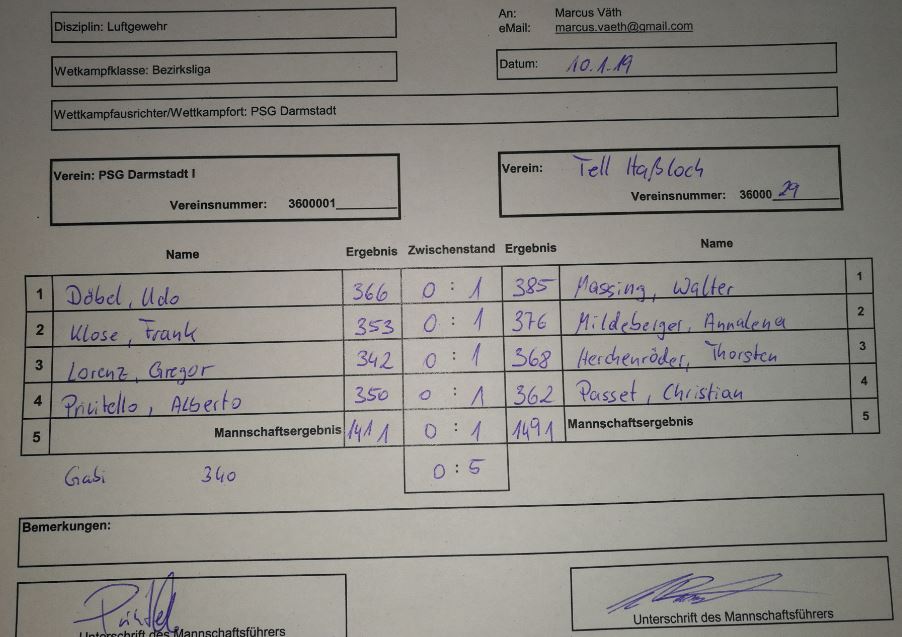 Disziplin: Luftgewehr
An: Marcus Väth
eMail: marcus.vaeth@gmail.com
Wetkampfklasse: Bezirksliga
Datum: 10.1.19
Wettkampfausrichter/Wettkampfort: PSG Darmstadt
Verein: PSG Darmstadt I
Vereinsnummer: 3600001
Verein: Tell Haßloch
Vereinsnummer: 36000 29
Name Ergebnis Zwischenstand Ergebnis Name
1 Döbel, Udo 366 0 : 1 385 Massing, Walter 1
2 Klose, Frank 353 0 : 1 376 Mildeberger, Annalena 2
3 Lorenz, Gregor 342 0 : 1 368 Herchenröder, Thorsten 3
4 Privitello, Alberto 350 0 : 1 362 Passet, Christian 4
5 Mannschaftsergebnis 1411 0 : 1 1491 Mannschaftsergebnis 5
Gabi 340 0 : 5
Bemerkungen:
Unterschrift des Mannschaftsführers
Unterschrift des Mannschaftsführers